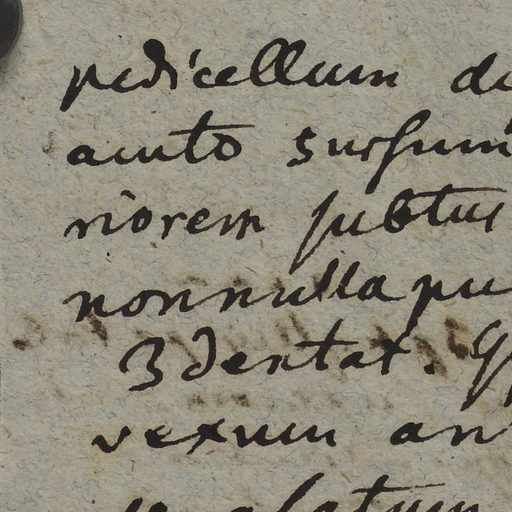 pedicellum di
acuto sursum
riorem subtus
nonnulla pu
3dentat.
vexum an